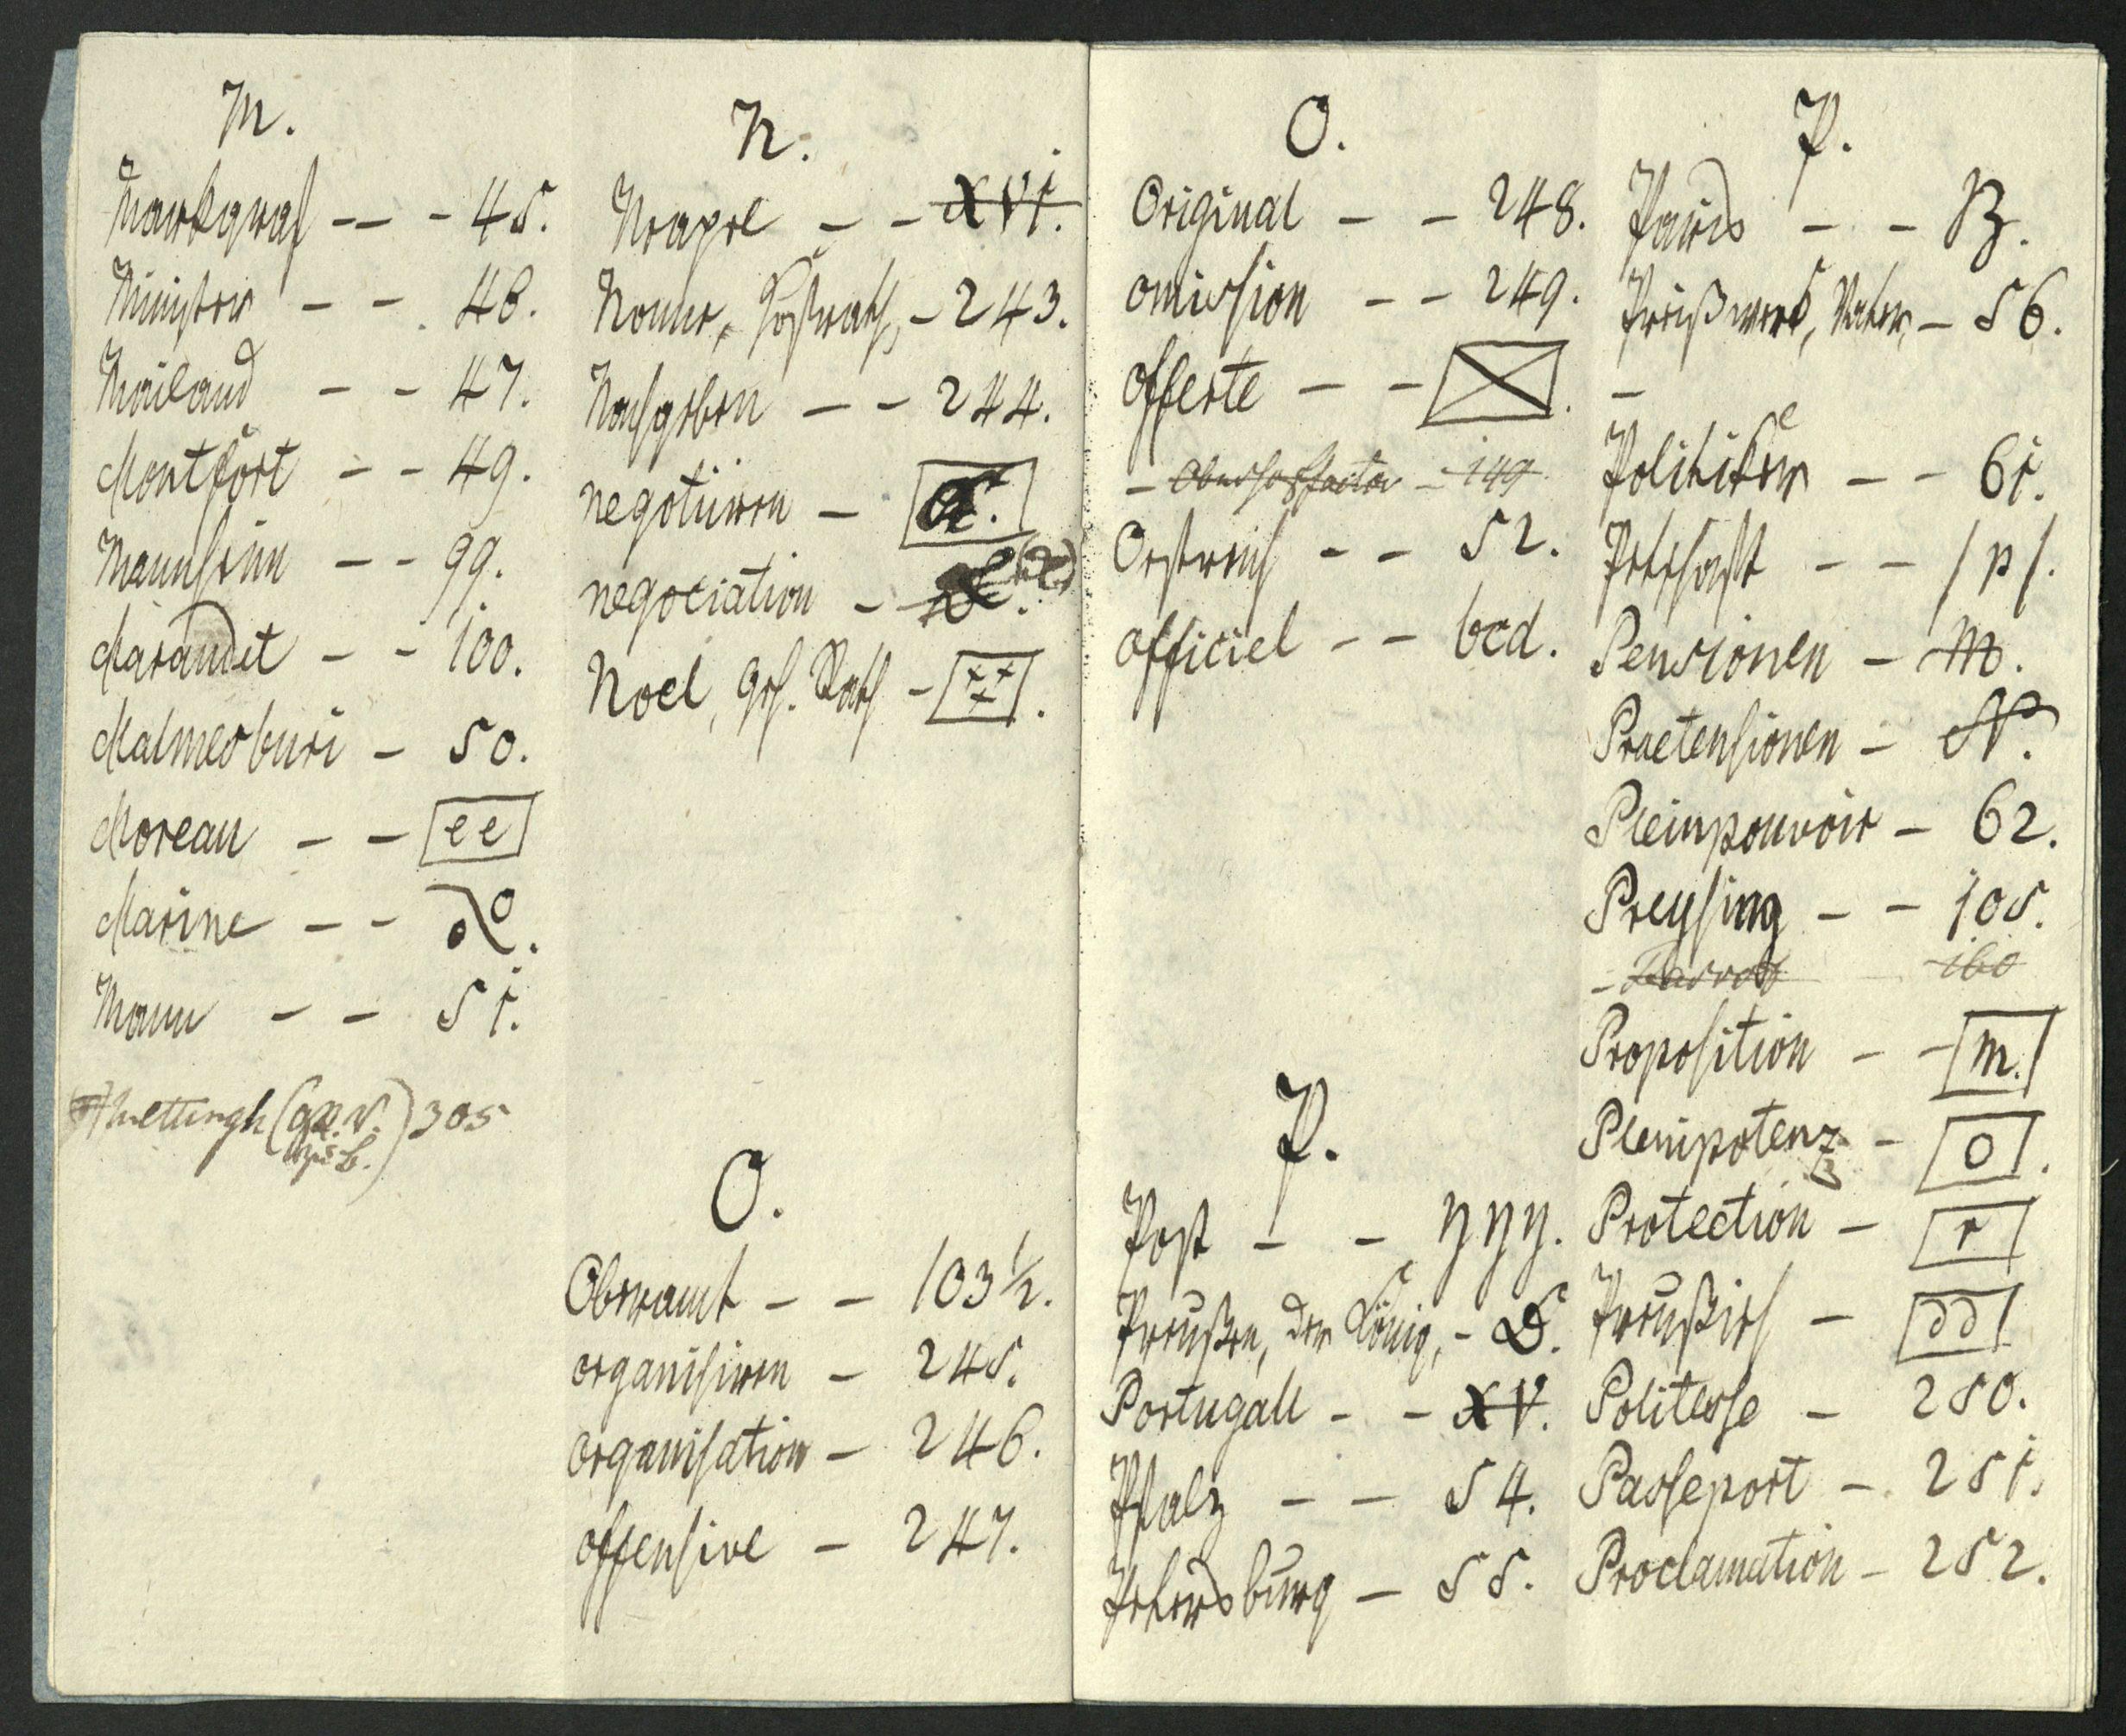 M.
Markgraf - - - 45.
Minister - - . 46.
Mailand - - 47.
Montfort - - 49.
Mannheim - - 99.
Marandet - - 100.
Malmesburi - 50.
Moreau - - ee
Marine - -
Mann - - 51.
Mettingh 305
N.
Neapel - - XVI.
Nonne, Hofrath, - 243.
Nachgeben - - 244.
negotiiren -
negociation -
Noel, Geh. Rath - +++.
O.
Oberamt - - 103½.
organisiren - 245.
organisation - 246.
offensive - 247.
O.
Original - - 248.
omission - - 249.
offerte - -
- 149
Oestreich - - 52.
officiel - - bcd.
P.
Post - - yyy.
Preußen, der König, - D.
Portugall - - XV.
Pfalz - - 54.
Petersburg - 55.
P.
Paris - - B.
Preuß - 56.
-
Politiker - - 61.
Pettschaft - - /p/.
Pensionen - M.
Praetensionen - N.
Pleinpouvoir - 62.
Preysing - - 105.
- 160
Proposition - - m.
Plenipotenz - O.
Protection - r
Preußisch - dd
Politesse - 250.
Passeport - 251.
Proclamation - 252.